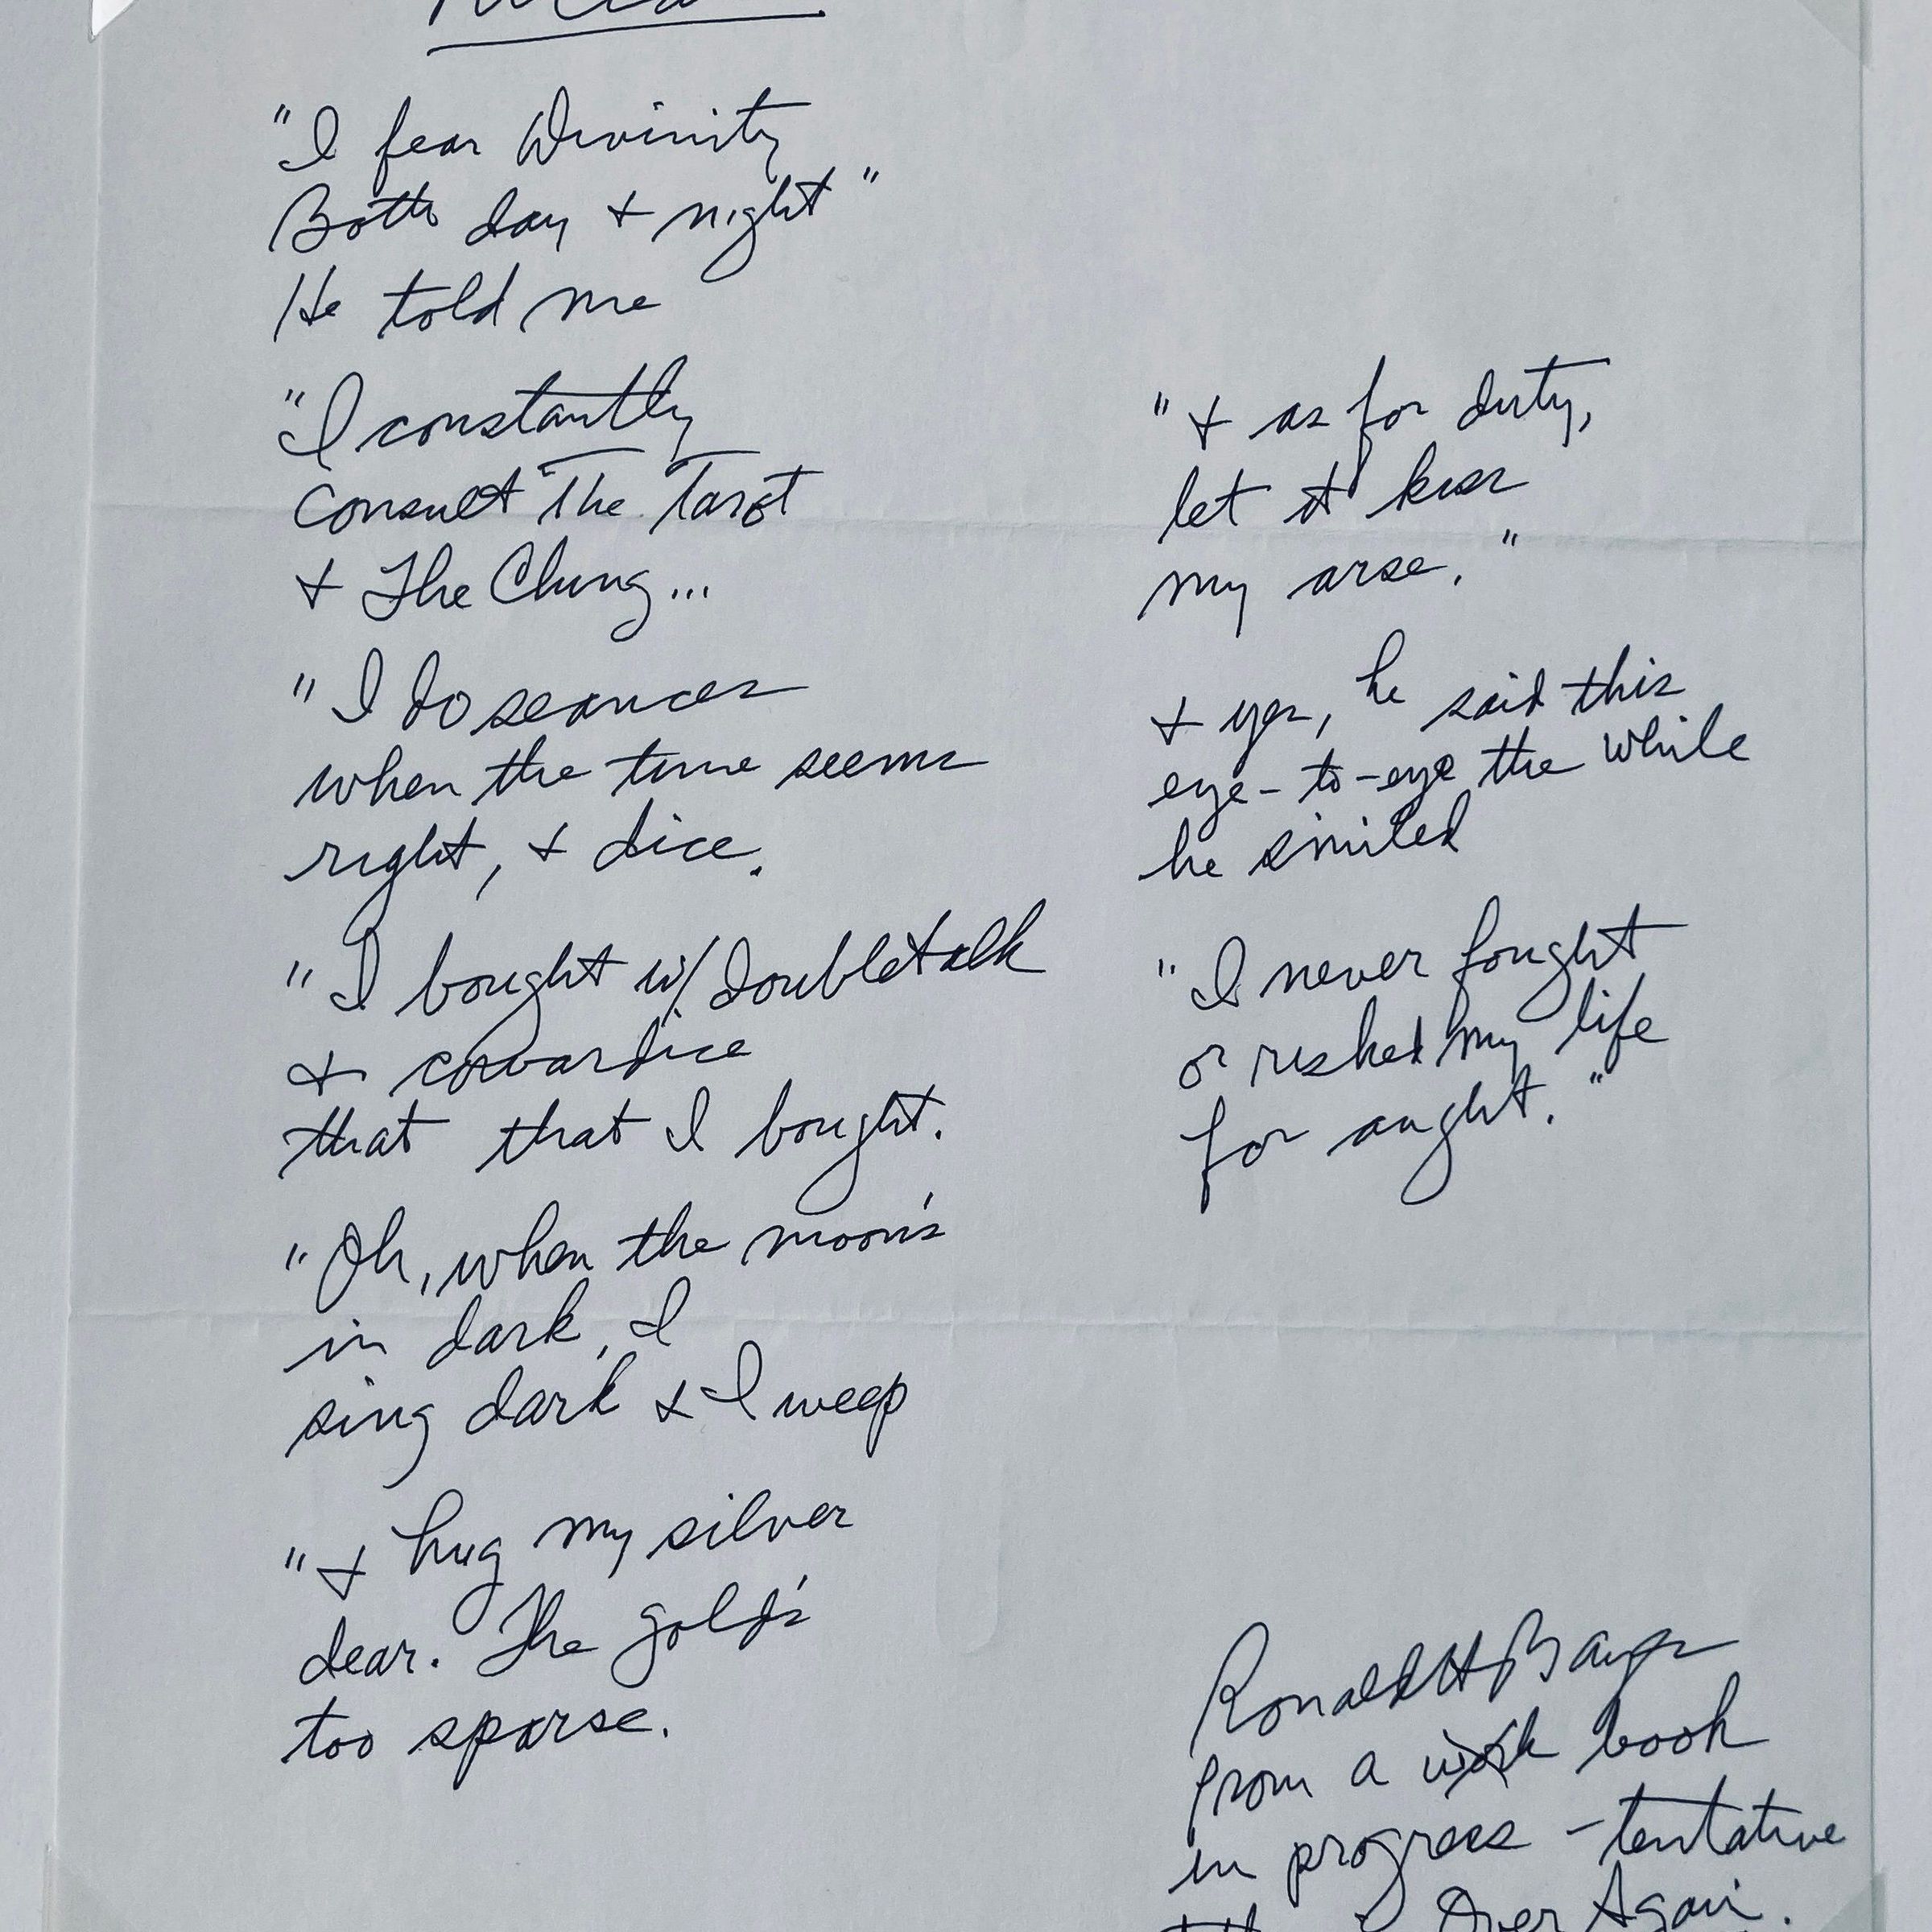 "I fear Divinity
Both day & night"
He told me
"I constantly
consult The Tarot
& The Ching...
"I do seances
when the time seems
right, & dice.
"I bought w/ doubletalk
& cowardice
that that I bought.
"Oh, when the moon's
in dark, I
sing dark & I weep
"& hug my silver
dear. The gold's
too sparse.
"& as for duty,
let it kiss
my arse."
& yes, he said this
eye-to-eye the while
he smiled
"I never fought
or risked my life
for aught."
Ronald H Bayes
from a work book
in progress - tentative
Over Again.